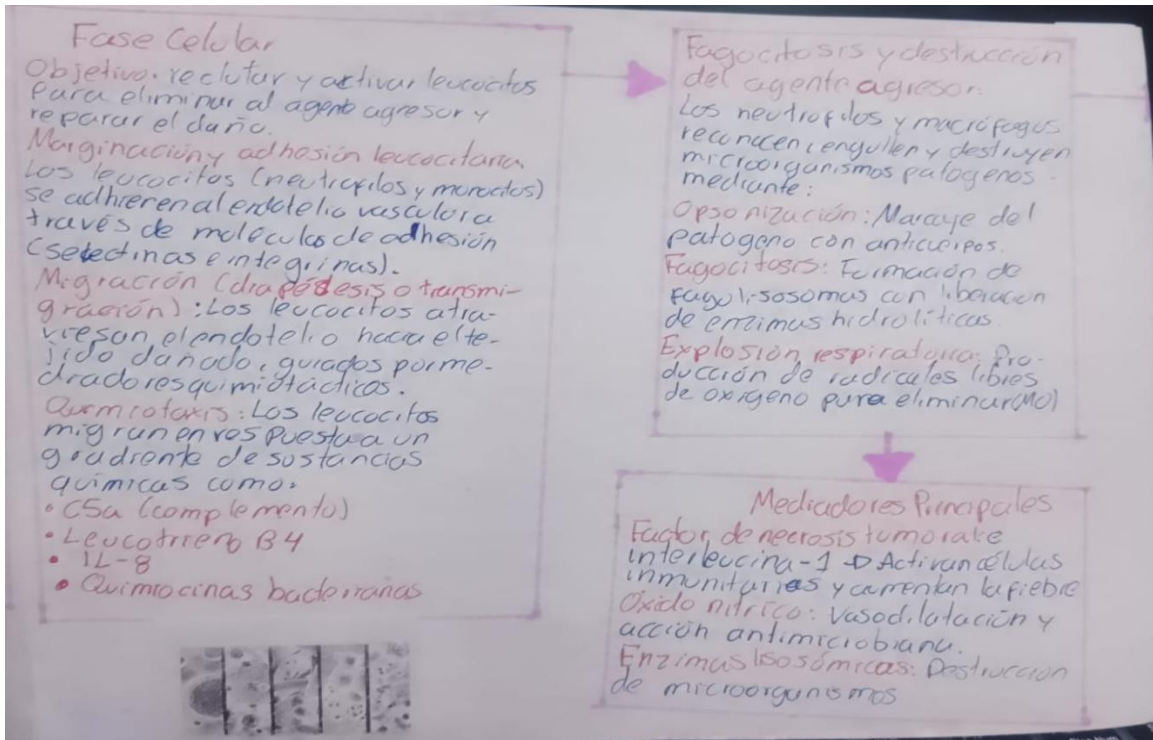 Fase Celular
Objetivo: reclutar y activar leucocitos
para eliminar al agente agresor y
reparar el daño.
Marginación y adhesión leucocitaria
Los leucocitos (neutrofilos y monocitos)
se adhieren al endotelio vascular a
través de moléculas de adhesión
(selectinas e integrinas).
Migración (diapédesis o transmi-
gración): Los leucocitos atra-
viesan el endotelio hacia el te-
jido dañado, guiados por me-
diadores quimiotácticos.
Quimiotaxis: Los leucocitos
migran en respuesta a un
gradiente de sustancias
químicas como:
• C5a (complemento)
• Leucotrieno B4
• IL-8
• Quimiocinas bacterianas
Fagocitosis y destrucción
del agente agresor.
Los neutrofilos y macrófagos
reconocen, engullen y destruyen
microorganismos patogenos
mediante:
Opsonización: Marcaje del
patogeno con anticuerpos.
Fagocitosis: Formación de
fagolisosomas con liberación
de enzimas hidrolíticas.
Explosión respiratoria: Pro-
ducción de radicales libres
de oxigeno para eliminar (MO)
Mediadores Principales
Factor de necrosis tumoral e
interleucina-1 → Activan células
inmunitarias y aumentan la fiebre
Oxido nítrico: Vasodilatación y
acción antimicrobiana.
Enzimas lisosómicas: Destrucción
de microorganismos